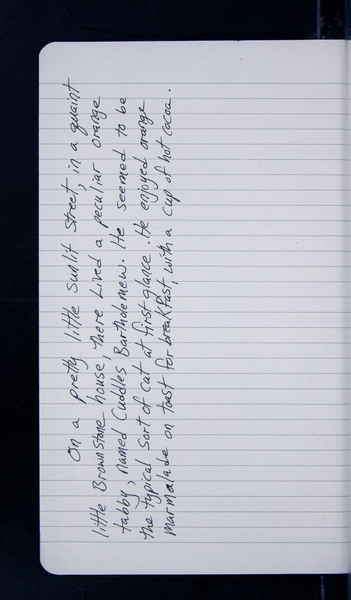 On a pretty little sunlit street, in a quaint
little Brownstone house, there Lived a peculiar orange
tabby, named Cuddles Bartholemew. He seemed to be
the typical sort of cat at first glance. He enjoyed orange
marmalade on toast for breakfast, with a cup of hot cocoa.